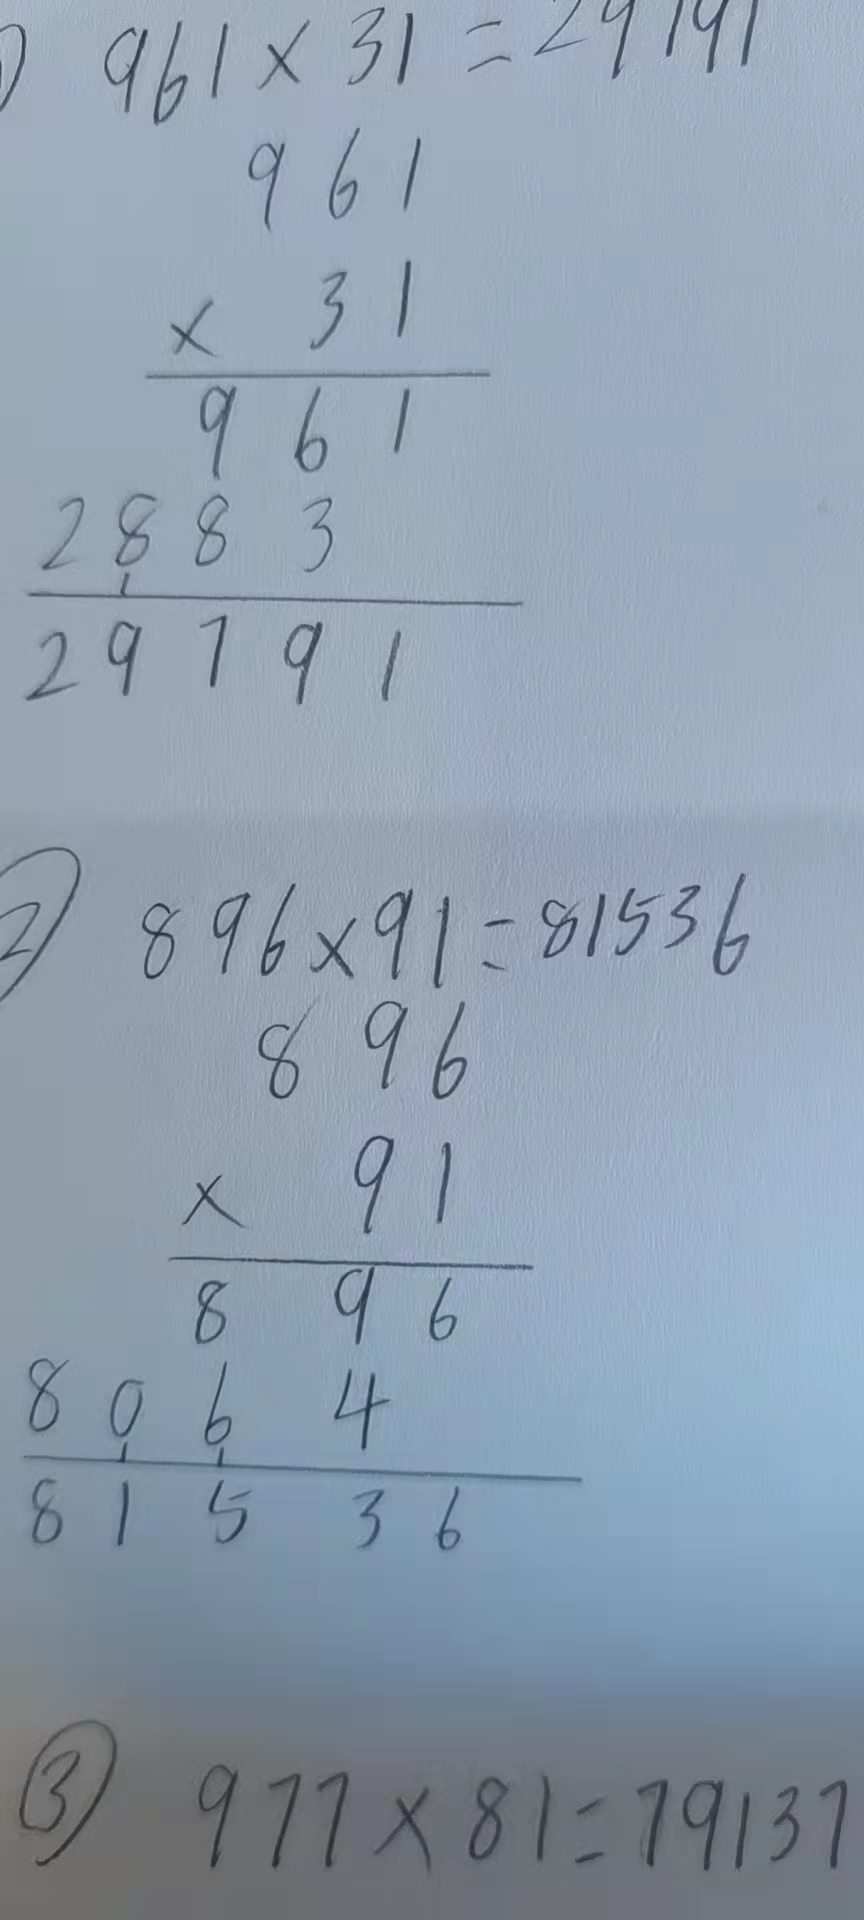 ① 961 × 31 = 29791
961
× 31
961
2883
1
29791
② 896 × 91 = 81536
896
× 91
896
8064
1 1
81536
③ 977 × 81 = 79137